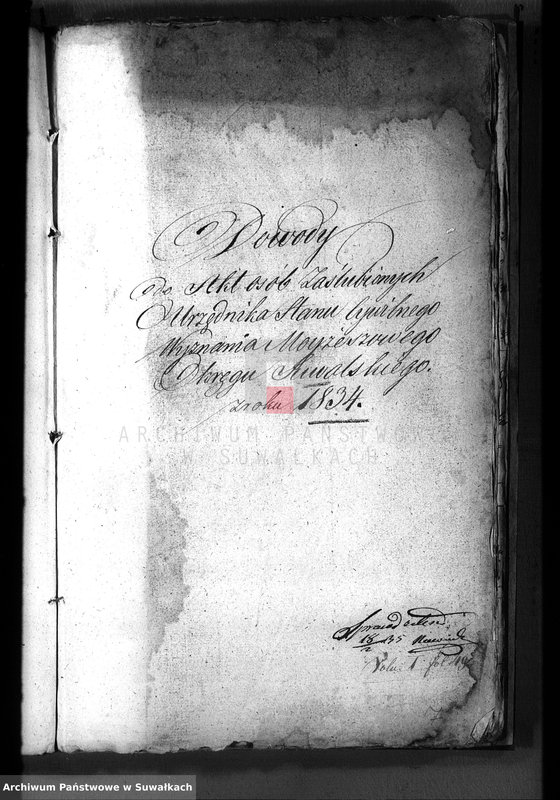 Dowody
do Akt osób Zaślubionych
Urzędnika Stanu Cywilnego
Wyznania Moyżeszowego
Okręgu Suwalskiego.
z roku 1834.
ARCHIWUM PAŃSTWOWE
W SUWAŁKACH
Sprawdziłem
18/2 835
Archiwum Państwowe w Suwałkach